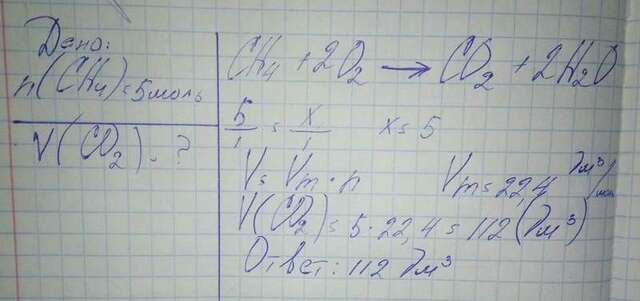 Дано:
n(CH₄) = 5 моль
V(CO₂) - ?
CH₄ + 2O₂ → CO₂ + 2H₂O
5/1 = x/1 x = 5
V = Vm · n Vm = 22,4 дм³/моль
V(CO₂) = 5 · 22,4 = 112 (дм³)
Ответ: 112 дм³